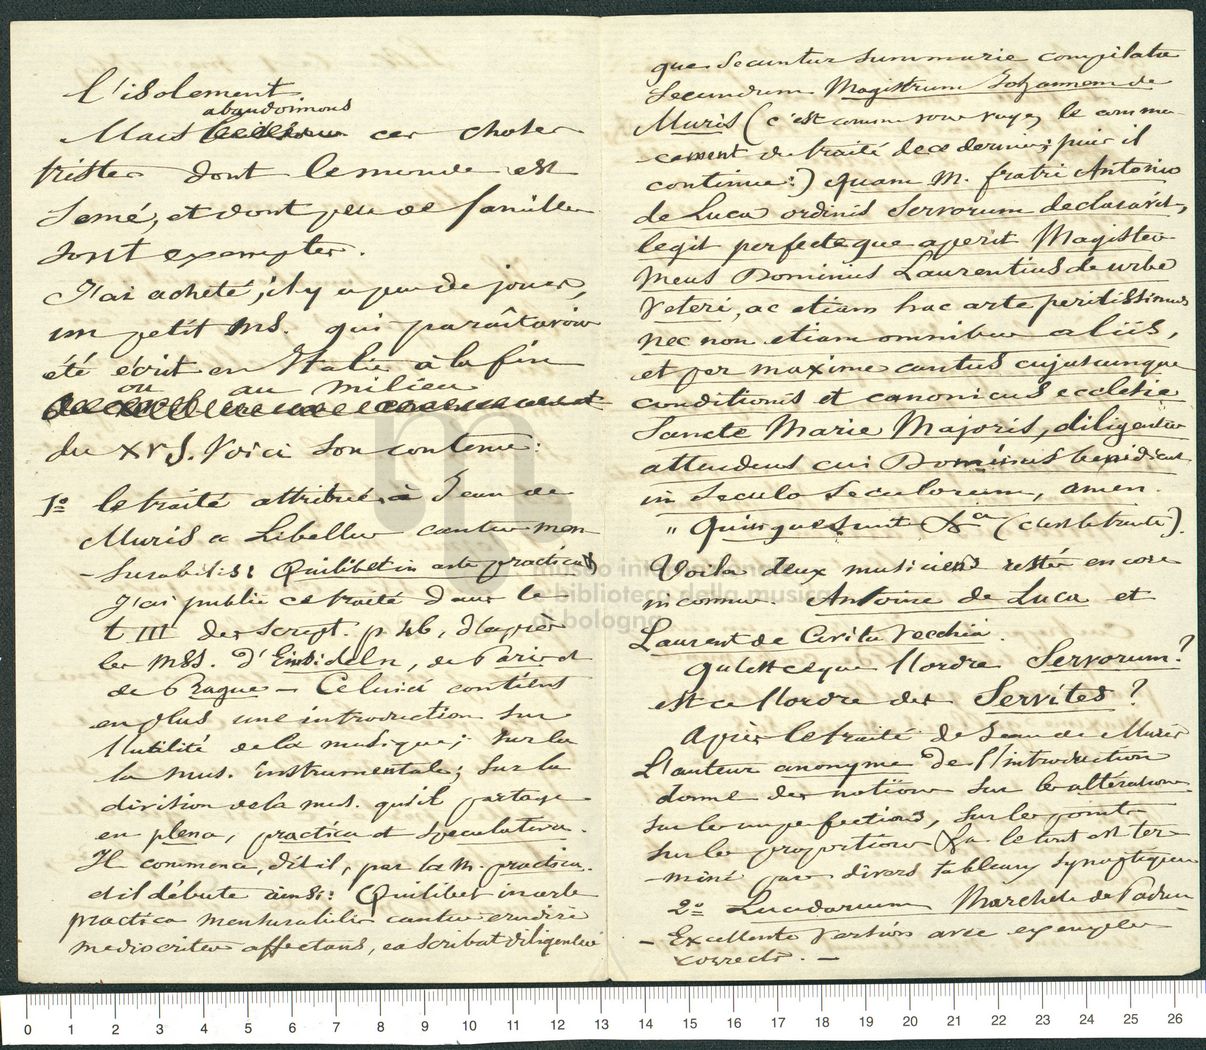 l'isolement
abandonnons
Mais ces choses
tristes dont le monde est
semé, et dont peu de familles
sont exemptes.
J'ai acheté, il y a peu de jours,
un petit MS. qui paraît avoir
été écrit en Italie à la fin
ou au milieu
du XV S. Voici son contenu:
1º le traité attribué à Jean de
Muris a Libellus cantus men
-surabilis: Quilibet in arte practica
J'ai publié ce traité dans le
t III des Script. p 46, d'après
les MSS. d'Einsideln, de Paris et
de Prague — Celui ci contient
en plus une introduction sur
l'utilité de la musique; sur la
la mus. instrumentale; sur la
division de la mus. qu'il partage
en plena, practica et speculativa.
Il commence, dit il, par la M. practica.
et il débute ainsi: Quilibet in arte
practica mensurabilis cantus erudiri
mediocriter affectans, ea scribat diligenter
que secuntur summarie compilata
secundum Magistrum Johannem de
Muris (c'est comme vous voyez le comme-
-cement du traité de ce dernier; puis il
continue:) quam M. fratri Antonio
de Luca ordinis Servorum declaravit,
legit perfecteque aperit Magister
meus Dominus Laurentius de urbe
Veteri, ac etiam hac arte peritissimus
nec non etiam omnibus aliis,
et per maxime cantus cujuscunque
conditionis et canonicus ecclesie
Sancte Marie Majoris, diligenter
attendens cui Dominus benedicat
in secula seculorum, amen.
" Quinque sunt &a (c'est le traité).
Voila deux musiciens restés encore
inconnus. Antoine de Luca et
Laurent de Civita Vecchia.
Qu'est ce que l'ordre Servorum?
est ce l'ordre des Servites?
Après le traité de Jean de Muris
L'auteur anonyme de l'introduction
donne des notions sur les altérations
sur les imperfections, sur les points
sur les proportions &a. le tout est ter
-miné par divers tableaux synoptiques
2º Lucidarium Marcheti de Padua
— Excellente version avec exemples
corrects. —
museo internazionale
e biblioteca della musica
di bologna
0 1 2 3 4 5 6 7 8 9 10 11 12 13 14 15 16 17 18 19 20 21 22 23 24 25 26